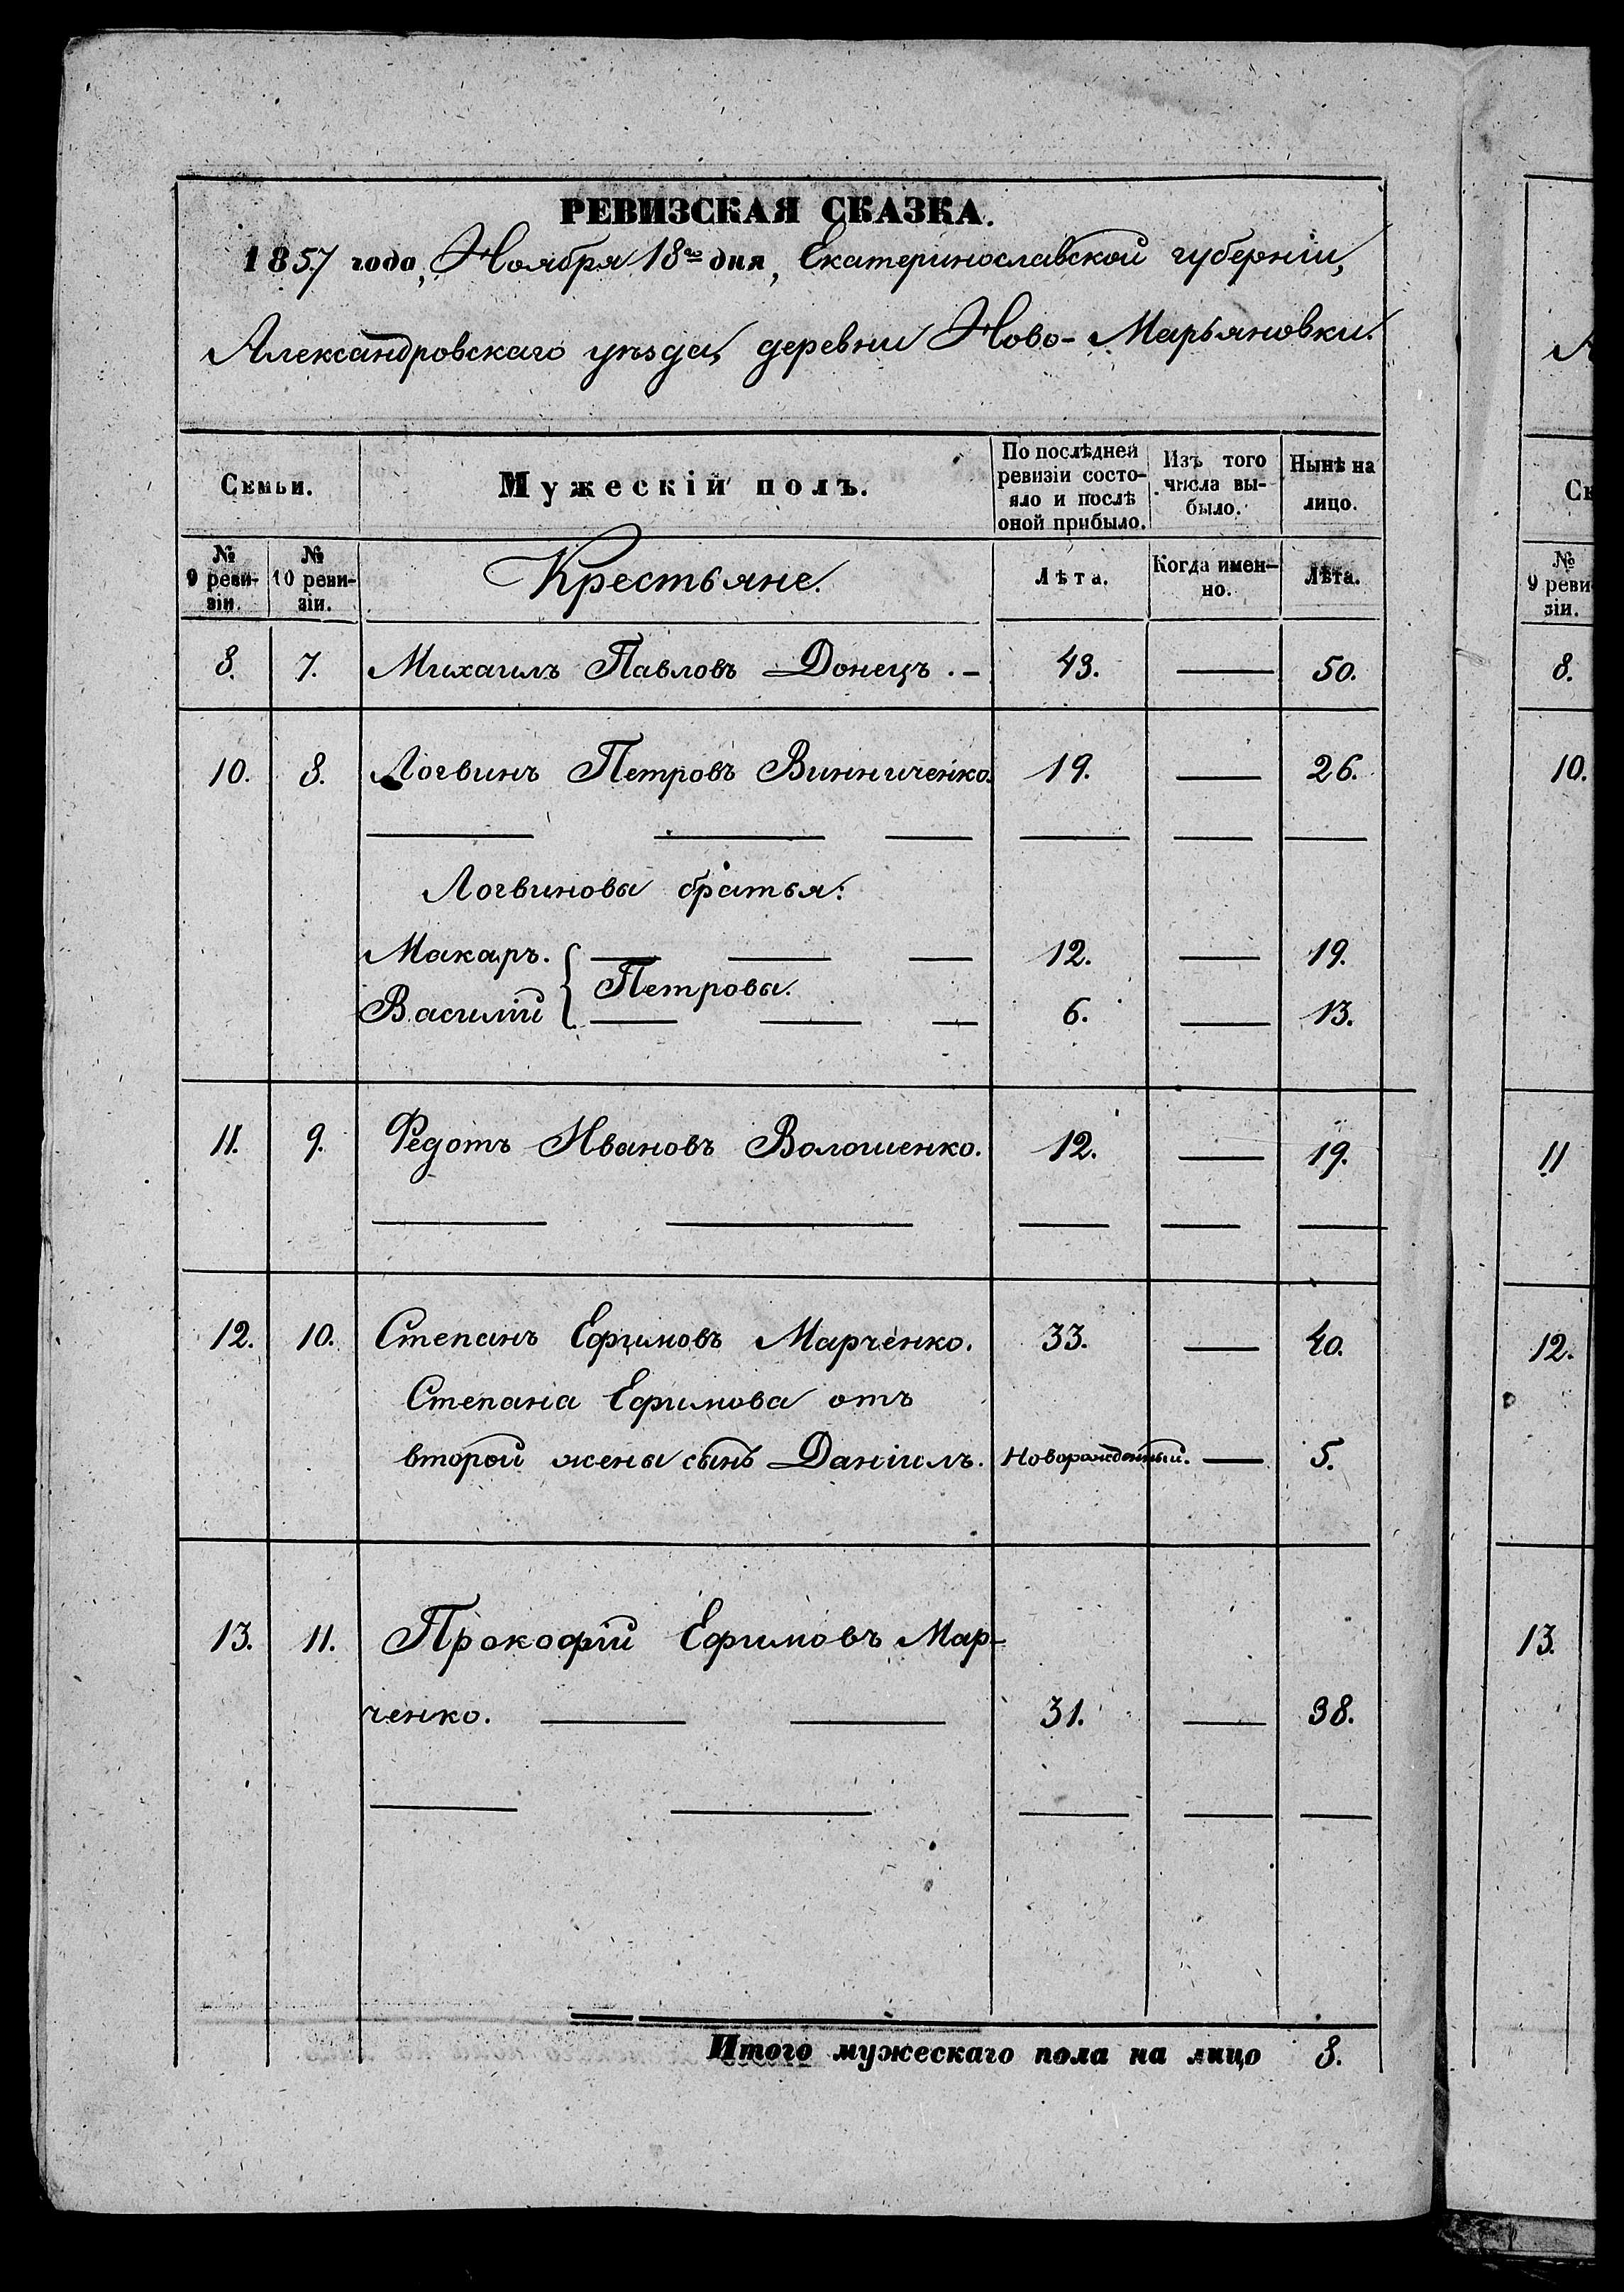 РЕВИЗСКАЯ СКАЗКА.
1857 года, Ноября 18го дня, Екатеринославской губерніи,
Александровскаго уѣзда, деревни Ново-Марьяновки.
Семьи.
Мужескій полъ.
По послѣдней
ревизіи состо-
яло и послѣ
оной прибыло.
Изъ того
числа вы-
было.
Нынѣ на
лицо.
№
9 реви-
зіи.
№
10 реви-
зіи.
Крестьяне.
Лѣта.
Когда имен-
но.
Лѣта.
8. 7. Михаилъ Павловъ Донецъ. — 43. — 50.
10. 8. Логвинъ Петровъ Винниченко. 19. — 26.
Логвинова братья:
Макаръ. 12. — 19.
Петрова.
Василій 6. — 13.
11. 9. Федотъ Ивановъ Волошенко. 12. — 19.
12. 10. Степанъ Ефимовъ Марченко. 33. — 40.
Степана Ефимова отъ
второй жены сынъ Даніилъ. Новорожденный. — 5.
13. 11. Прокофій Ефимовъ Мар-
ченко. 31. — 38.
Итого мужескаго пола на лицо 8.
А
Се
№
9 реви
зіи.
8.
10.
11
12.
13.